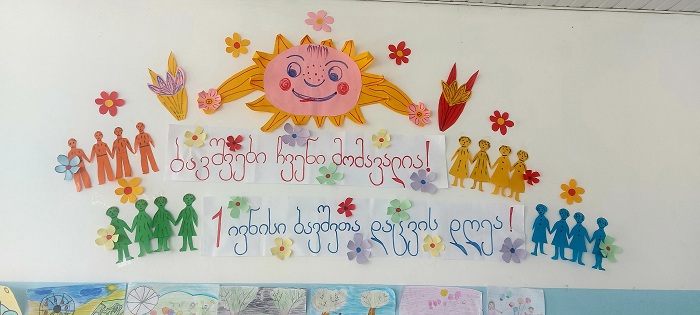 ბავშვები ჩვენი მომავალია!
1 ივნისი ბავშვთა დაცვის დღეა!